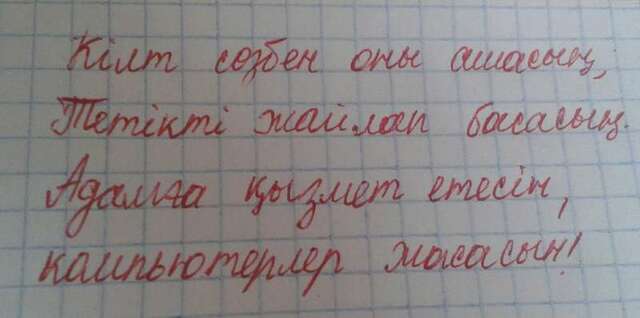 Кілт сөзбен оны ашасың,
Тетікті жайлап басасың.
Адамға қызмет етесің,
компьютерлер жасасын!